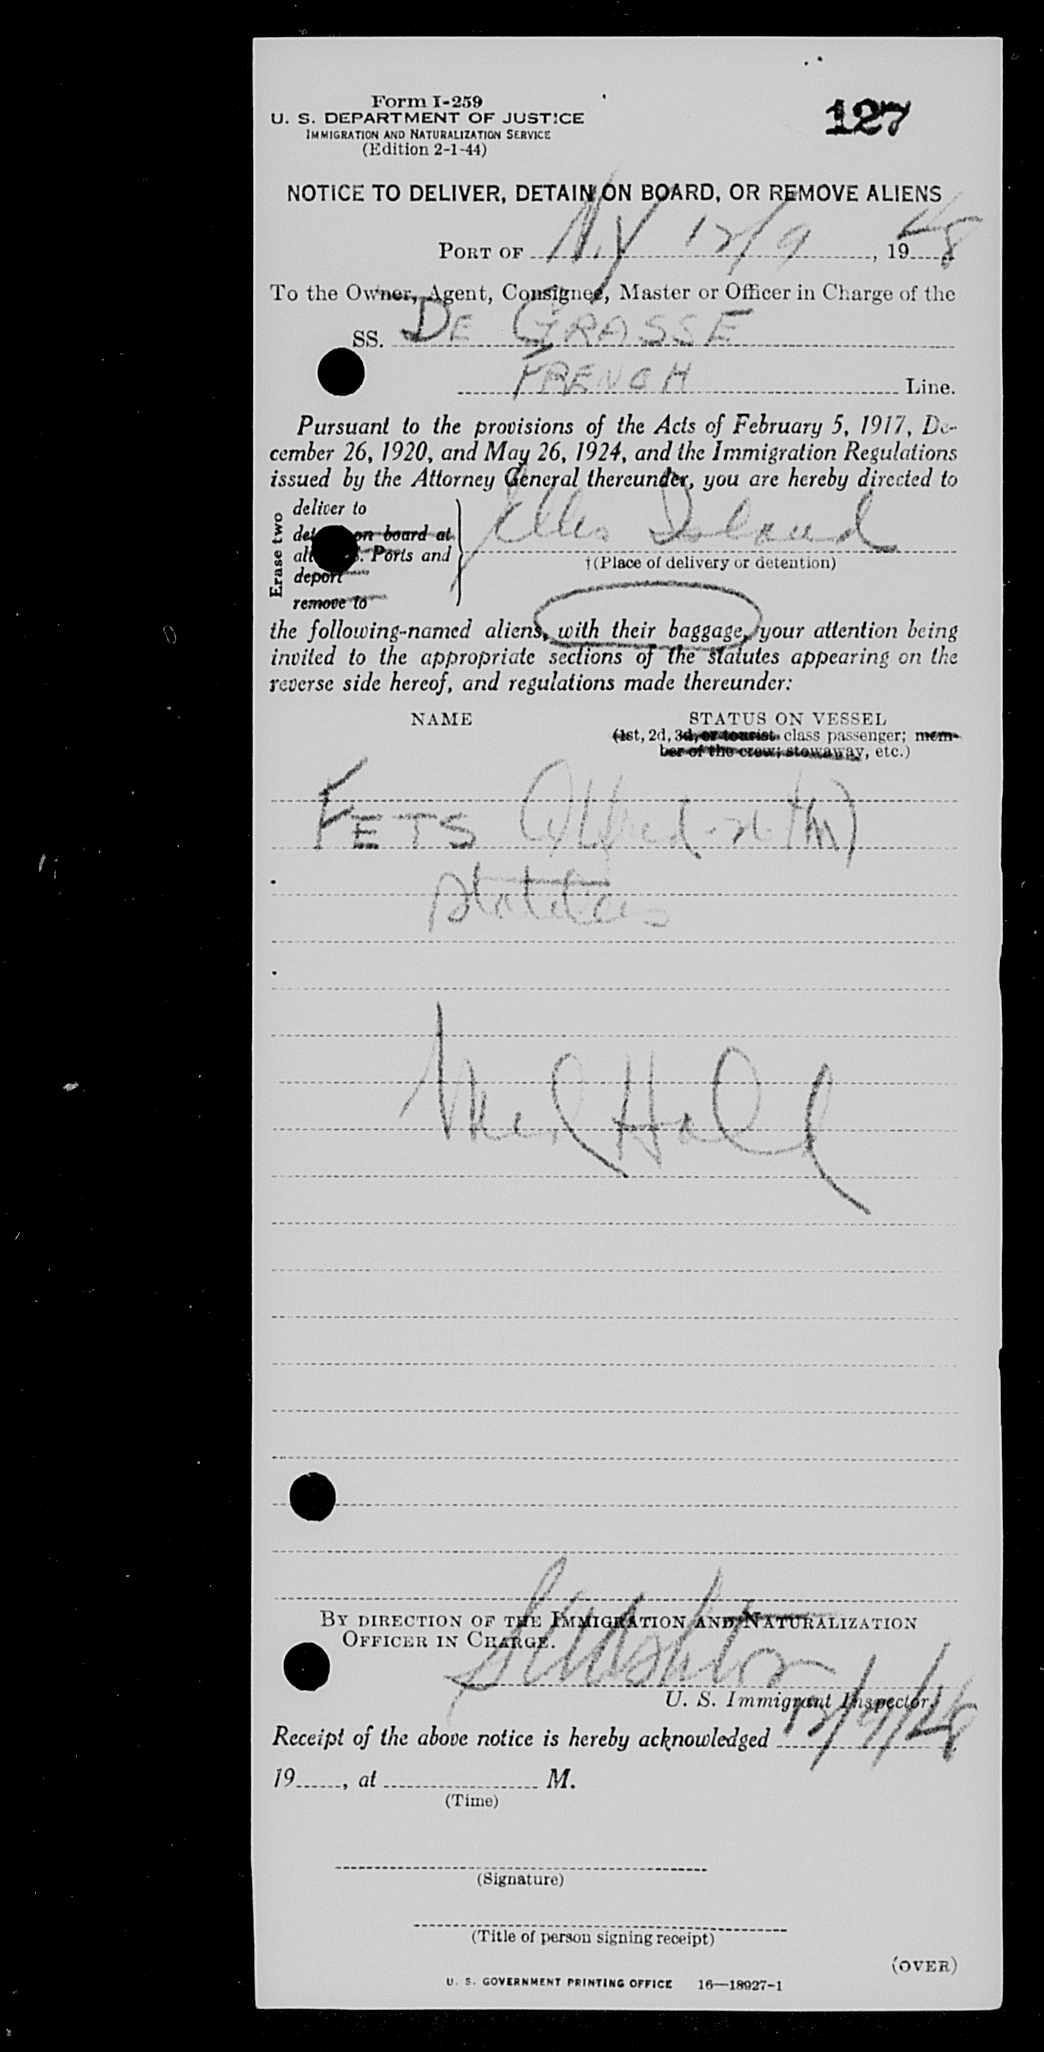 Form I-259
U. S. DEPARTMENT OF JUSTICE
IMMIGRATION AND NATURALIZATION SERVICE
(Edition 2-1-44)
127
NOTICE TO DELIVER, DETAIN ON BOARD, OR REMOVE ALIENS
PORT OF N.Y 12/9, 1948
To the Owner, Agent, Consignee, Master or Officer in Charge of the
SS. DE GRASSE
FRENCH Line.
Pursuant to the provisions of the Acts of February 5, 1917, De-
cember 26, 1920, and May 26, 1924, and the Immigration Regulations
issued by the Attorney General thereunder, you are hereby directed to
Erase two
deliver to
on board at
Ports and
deport
remove to
Ellis Island
†(Place of delivery or detention)
the following-named aliens, with their baggage, your attention being
invited to the appropriate sections of the statutes appearing on the
reverse side hereof, and regulations made thereunder:
NAME STATUS ON VESSEL
(1st, 2d, 3d, or tourist class passenger; mem-
ber of the crew; stowaway, etc.)
FETS Alfred
Hall
BY DIRECTION OF THE IMMIGRATION AND NATURALIZATION
OFFICER IN CHARGE.
U. S. Immigrant Inspector.
Receipt of the above notice is hereby acknowledged 12/9/48
19, at M.
(Time)
(Signature)
(Title of person signing receipt)
(OVER)
U. S. GOVERNMENT PRINTING OFFICE 16—18927-1